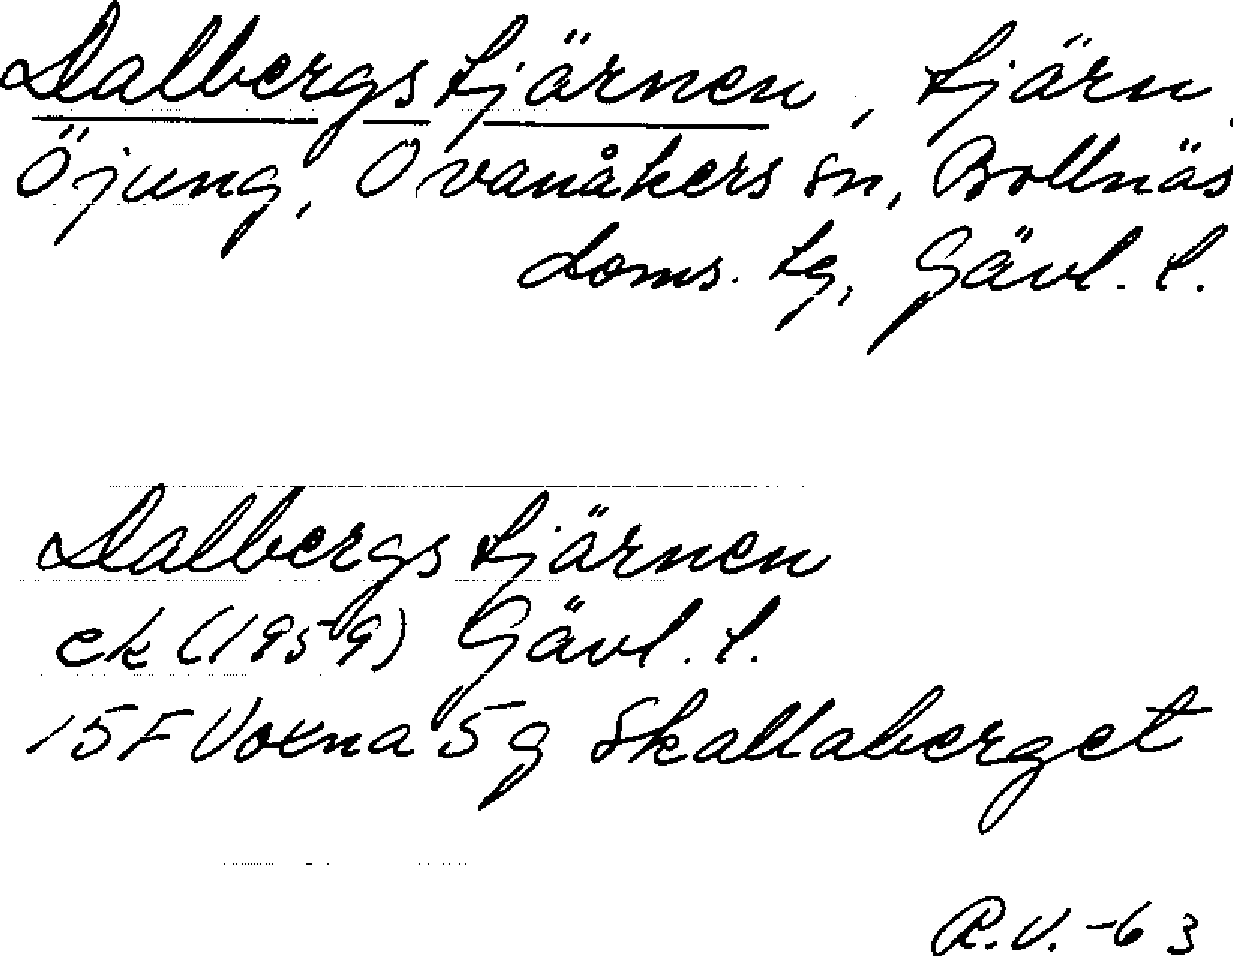 Dalbergstjärnen, tjärn
Öjung, Ovanåkers sn, Bollnäs
doms. tg, Gävl. l.
Dalbergstjärnen
ek (1959) Gävl. l.
15F Voxna 5g Skallaberget
R.V. -63